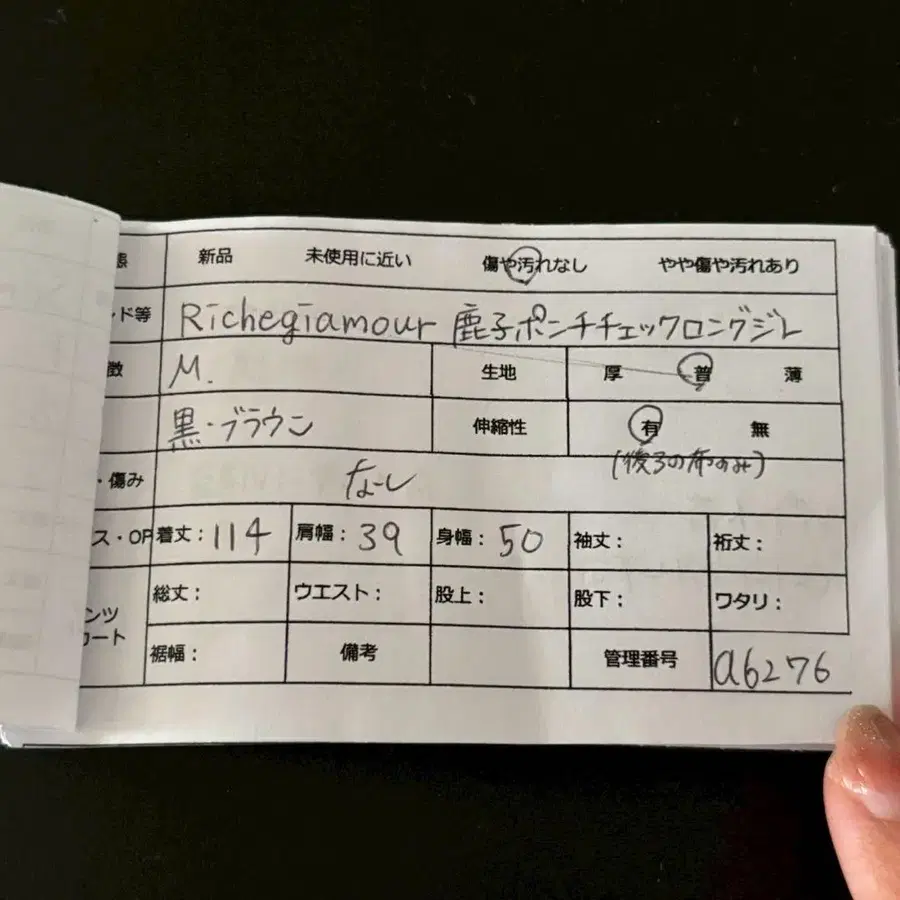 態 新品 未使用に近い 傷や汚れなし やや傷や汚れあり
ド等 Richegiamour 鹿子ポンチチェックロングジレ
徴 M. 生地 厚 普 薄
黒・ブラウン 伸縮性 有 無
(後ろの布のみ)
・傷み なし
ス・OP 着丈: 114 肩幅: 39 身幅: 50 袖丈: 裄丈:
総丈: ウエスト: 股上: 股下: ワタリ:
ンツ
カート
裾幅: 備考 管理番号 a6276